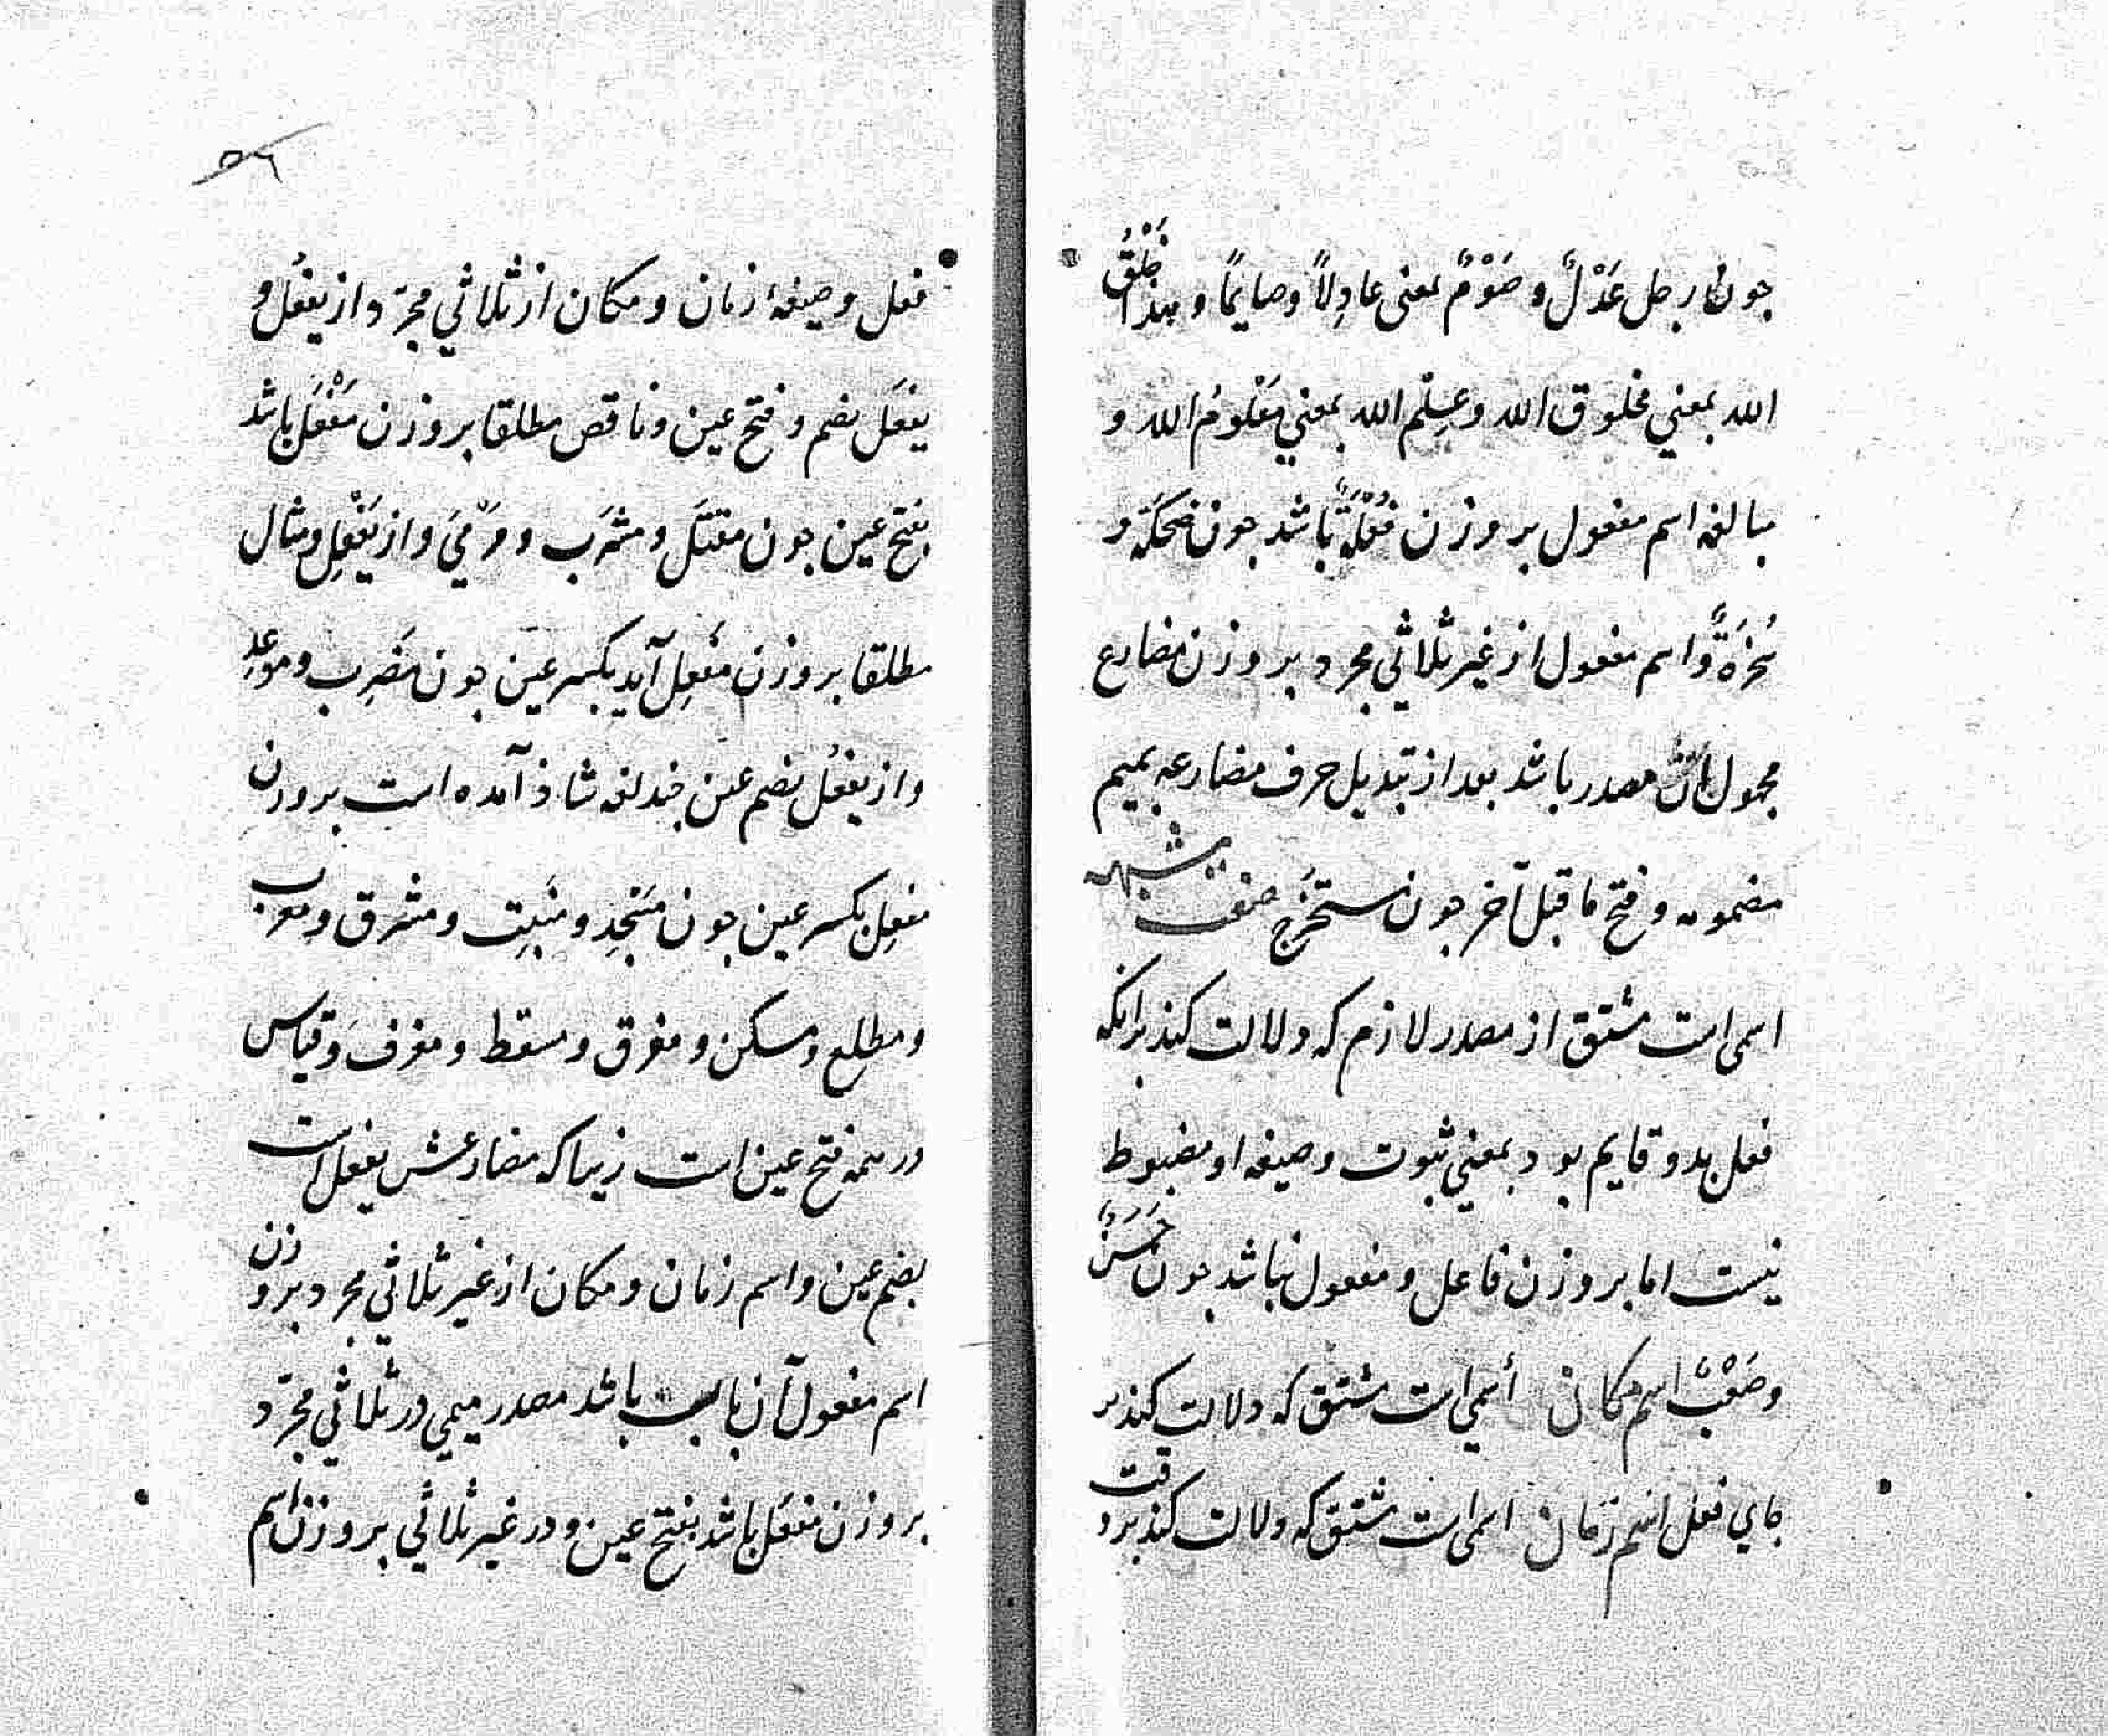 جون رجل عَدْلٌ و صَوْمٌ بمعنی عادِلاً وصایمًا و هذا خَلْقُ
الله بمعني مخلوق الله وعِلْم الله بمعني مَعْلومُ الله و
مبالغه اسم مفعول بر وزن فُعْلَةٌ باشد جون ضحکَة و
سُخرَةٌ واسم مفعول از غیر ثلاثي مجرد بر وزن مضارع
مجهول مصدر باشد بعد از تبدیل حرف مضارعه بمیم
مضمومه و فتح ما قبل آخر جون مستخرَج صفت مشبهه
اسمی است مشتق از مصدر لازم که دلالت کند برانکه
فعل بدو قایم بود بمعني ثبوت وصیغه او مضبوط
نیست اما بر وزن فاعل و مفعول نباشد جون حَسَنٌ
وصَعْبٌ اسم مکان أسمي است مشتق که دلالت کند بر
جاي فعل اسم زمان اسمی است مشتق که دلالت کند بر وقت
۵۶
فعل وصیغه زمان و مکان از ثلاثي مجرّد از یفعُل و
یفعَل بضم و فتح عین وناقص مطلقا بر وزن مَفْعَل باشد
بفتح عین جون مقتَل و مشرَب و مَرْميَ واز یَفْعِل ومثال
مطلقا بر وزن مَفعِل آید بکسر عین جون مَضرِب و موعِد
واز یفعُل بضم عین جند لغه شاذ آمده است بر وزن
مفعِل بکسر عین جون مَسْجِد و منَبِت و مشرق و مغرب
و مطلع و مسکن و مفرق و مسقط و مفرق و قیاس
در همه فتح عین است زیرا که مضارعش یفعل است
بضم عین واسم زمان و مکان از غیر ثلاثي مجرد بر وزن
اسم مفعول آن باب باشد مصدر میمي در ثلاثي مجرّد
بر وزن مفعَل باشد بفتح عین و در غیر ثلاثي بر وزن اسم